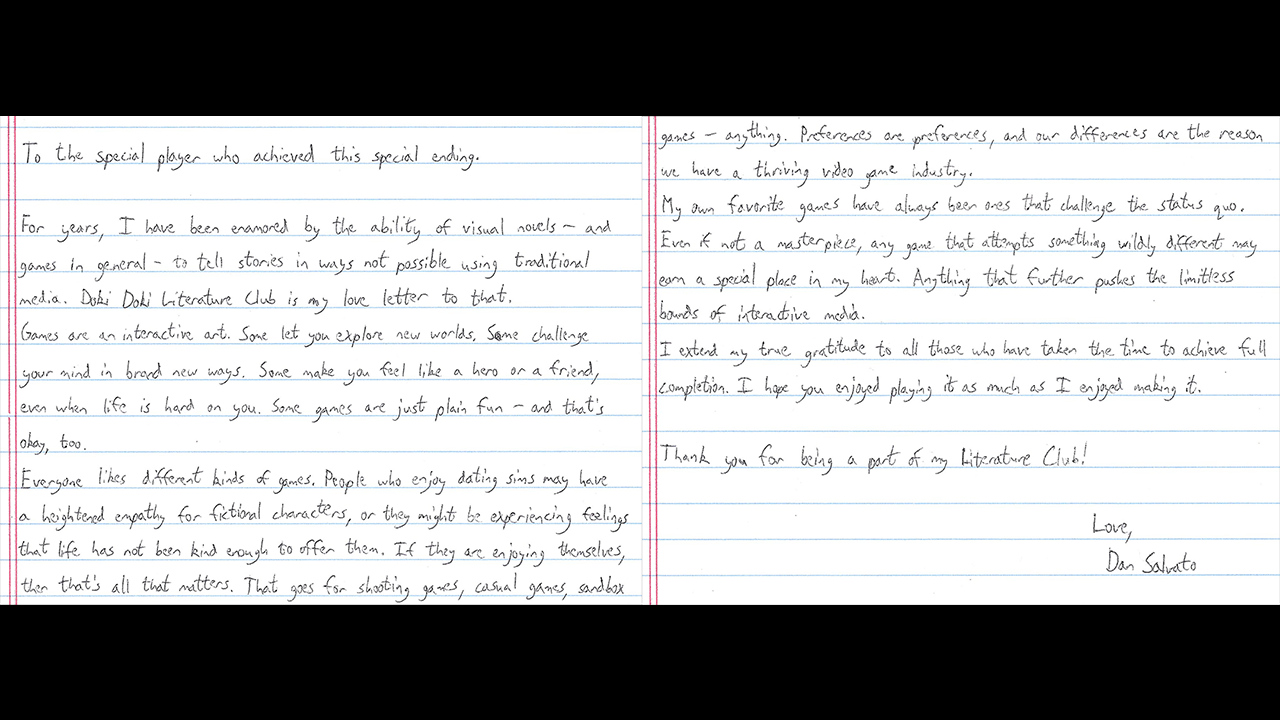 To the special player who achieved this special ending.
For years, I have been enamored by the ability of visual novels – and
games in general – to tell stories in ways not possible using traditional
media. Doki Doki Literature Club is my love letter to that.
Games are an interactive art. Some let you explore new worlds. Some challenge
your mind in brand new ways. Some make you feel like a hero or a friend,
even when life is hard on you. Some games are just plain fun – and that's
okay, too.
Everyone likes different kinds of games. People who enjoy dating sims may have
a heightened empathy for fictional characters, or they might be experiencing feelings
that life has not been kind enough to offer them. If they are enjoying themselves,
then that's all that matters. That goes for shooting games, casual games, sandbox
games – anything. Preferences are preferences, and our differences are the reason
we have a thriving video game industry.
My own favorite games have always been ones that challenge the status quo.
Even if not a masterpiece, any game that attempts something wildly different may
earn a special place in my heart. Anything that further pushes the limitless
bounds of interactive media.
I extend my true gratitude to all those who have taken the time to achieve full
completion. I hope you enjoyed playing it as much as I enjoyed making it.
Thank you for being a part of my Literature Club!
Love,
Dan Salvato